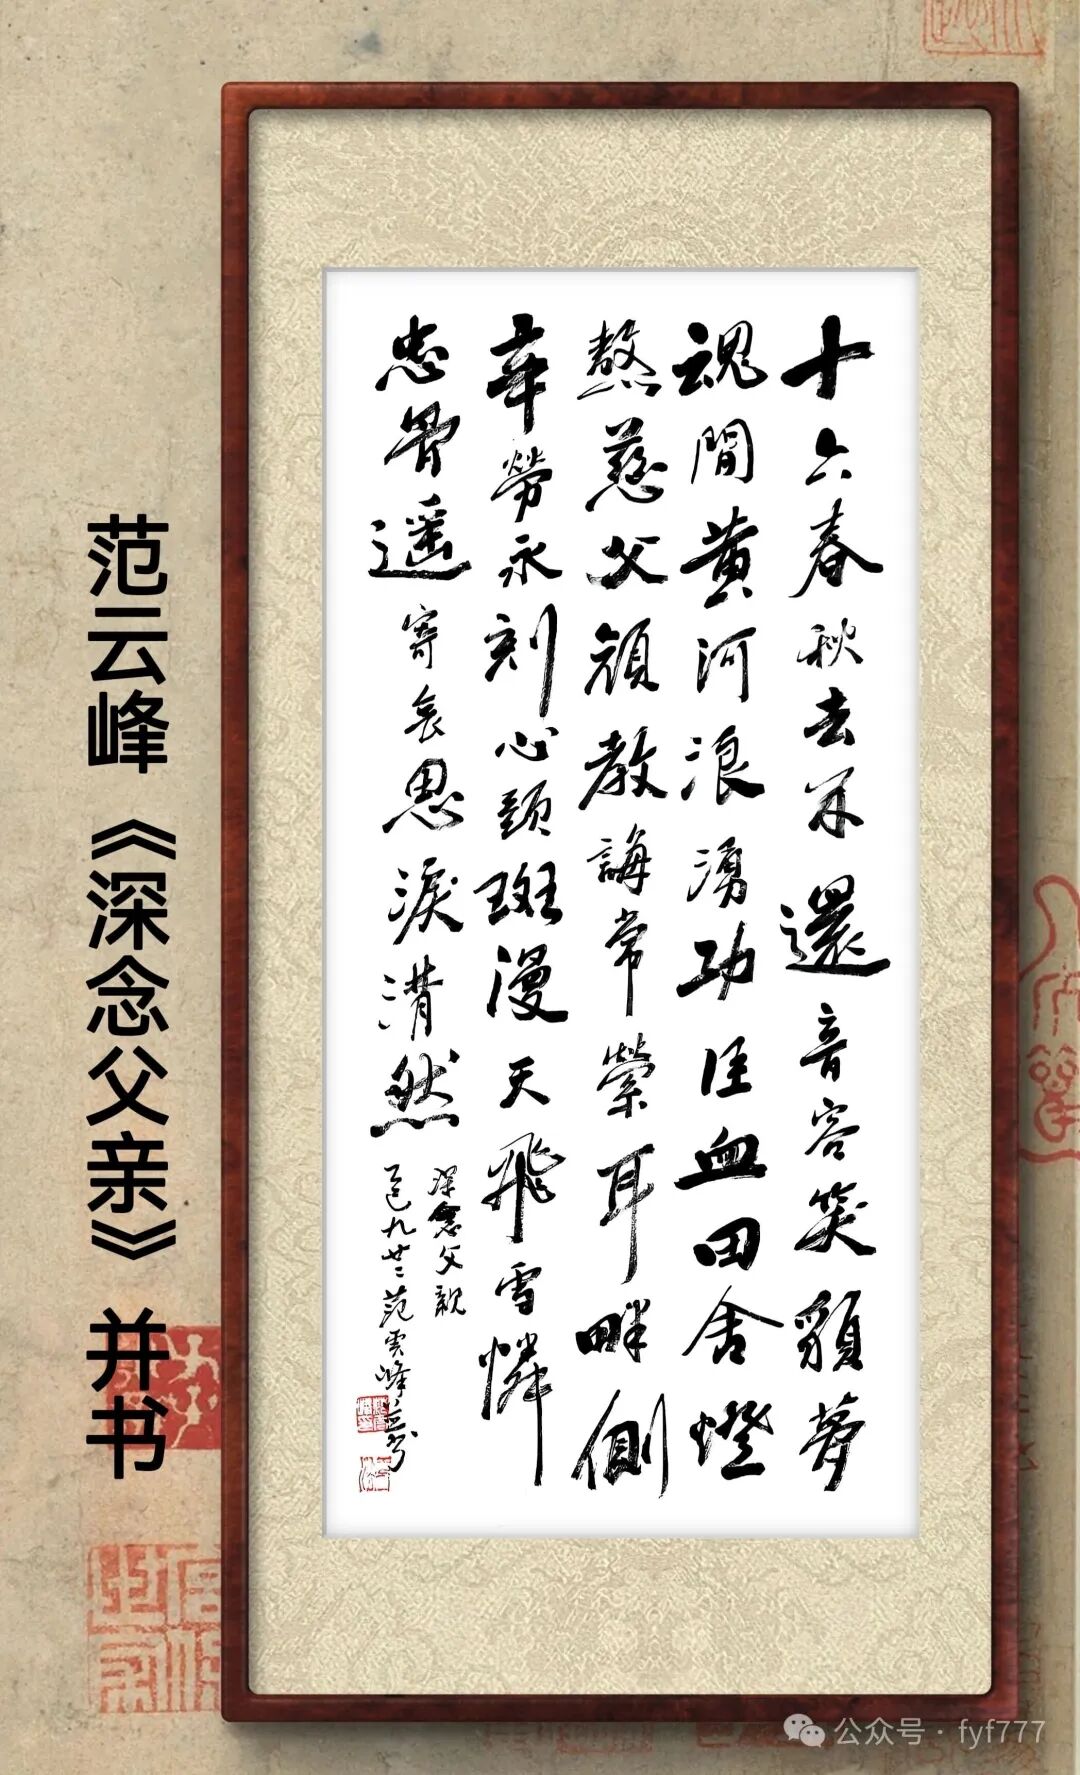 范云峰《深念父亲》并书
十六春秋去不還音容笑貌夢
魂間黄河浪湧功臣血田舍燈
熬慈父顔教誨常縈耳畔側
辛勞永刻心頭斑漫天飛雪憐
忠骨遥寄哀思淚潸然
深念父親
乙巳九廿二范雲峰並書
公众号·fyf777